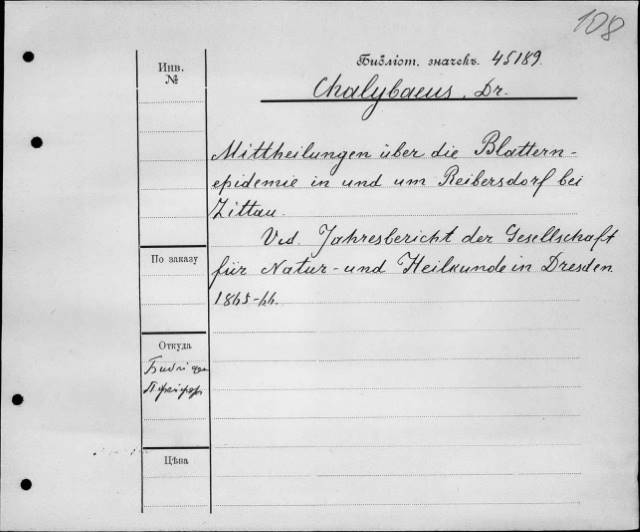 108
Библіот. значекъ. 45189.
Инв.
№
Chalybaeus, Dr.
Mittheilungen über die Blattern-
epidemie in und um Reibersdorf bei
Zittau.
Vid. Jahresbericht der Gesellschaft
für Natur- und Heilkunde in Dresden
1865-66.
По заказу
Откуда
Пфейфер
Цѣна